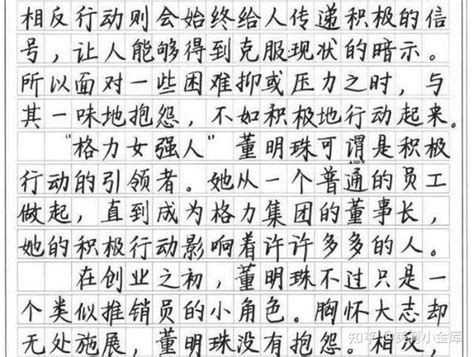 相反行动则会始终给人传递积极的信
号，让人能够得到克服现状的暗示。
所以面对一些困难抑或压力之时，与
其一味地抱怨，不如积极地行动起来。
“格力女强人”董明珠可谓是积极
行动的引领者。她从一个普通的员工
做起，直到成为格力集团的董事长，
她的积极行动影响着许许多多的人。
在创业之初，董明珠不过只是一
个类似推销员的小角色。胸怀大志却
无处施展，董明珠没有抱怨。相反，